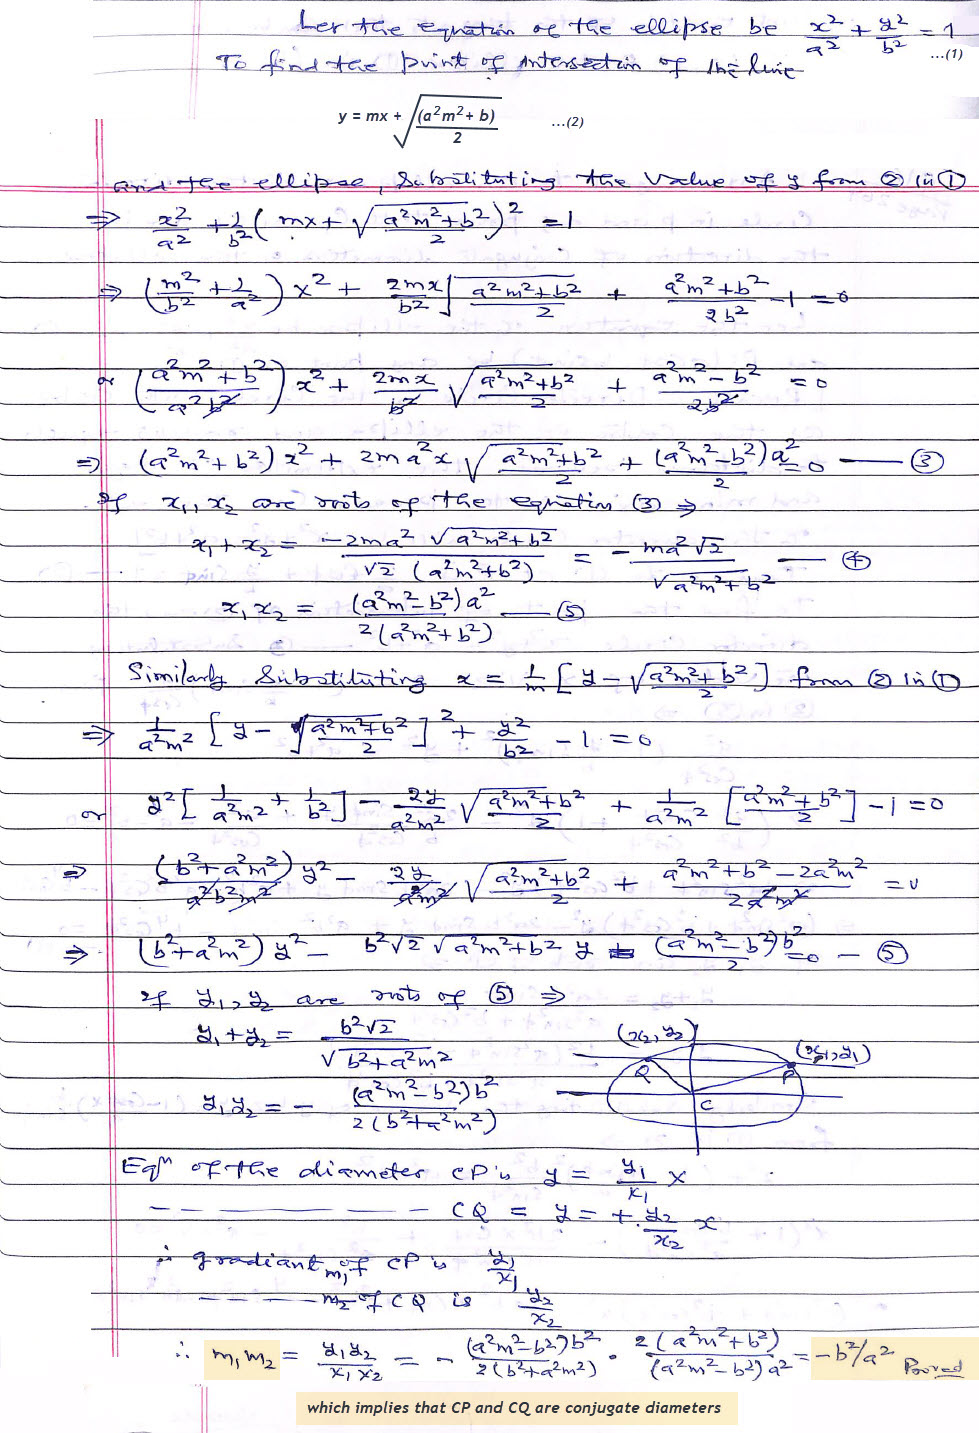 Let the equation of the ellipse be x²/a² + y²/b² = 1 ...(1)
To find the point of intersection of the line
y = mx + √((a²m² + b)/2) ...(2)
and the ellipse, Substituting the value of y from ② in ①
⇒ x²/a² + 1/b² ( mx + √((a²m² + b²)/2) )² = 1
⇒ (m²/b² + 1/a²) x² + 2mx/b² √((a²m² + b²)/2) + (a²m² + b²)/2b² - 1 = 0
or ((a²m² + b²)/a²b²) x² + 2mx/b² √((a²m² + b²)/2) + (a²m² - b²)/2b² = 0
⇒ (a²m² + b²) x² + 2ma²x √((a²m² + b²)/2) + (a²m² - b²)a²/2 = 0 — ③
If x₁, x₂ are roots of the equation (3) ⇒
x₁ + x₂ = -2ma² √(a²m² + b²) / √2 (a²m² + b²) = - ma²√2 / √(a²m² + b²) — ④
x₁ x₂ = (a²m² - b²)a² / 2(a²m² + b²) — ⑤
Similarly Substituting x = 1/m [ y - √((a²m² + b²)/2) ] from ② in ①
⇒ 1/a²m² [ y - √((a²m² + b²)/2) ]² + y²/b² - 1 = 0
or y² [ 1/a²m² + 1/b² ] - 2y/a²m² √((a²m² + b²)/2) + 1/a²m² [ (a²m² + b²)/2 ] - 1 = 0
⇒ (b² + a²m²)/a²b²m² y² - 2y/a²m² √((a²m² + b²)/2) + (a²m² + b² - 2a²m²)/2a²m² = 0
⇒ (b² + a²m²) y² - b²√2 √(a²m² + b²) y - (a²m² - b²)b²/2 = 0 — ⑤
If y₁, y₂ are roots of ⑤ ⇒
y₁ + y₂ = b²√2 / √(b² + a²m²)
(x₂, y₂)
(x₁, y₁)
Q
P
C
y₁y₂ = - (a²m² - b²)b² / 2(b² + a²m²)
Eqⁿ of the diameter CP is y = y₁/x₁ x
— — — — — CQ = y = + y₂/x₂ x
∴ gradiant m₁ of CP is y₁/x₁
— — — — m₂ of CQ is y₂/x₂
∴ m₁m₂ = y₁y₂/x₁x₂ = - (a²m² - b²)b² / 2(b² + a²m²) · 2(a²m² + b²) / (a²m² - b²)a² = -b²/a² Proved
which implies that CP and CQ are conjugate diameters